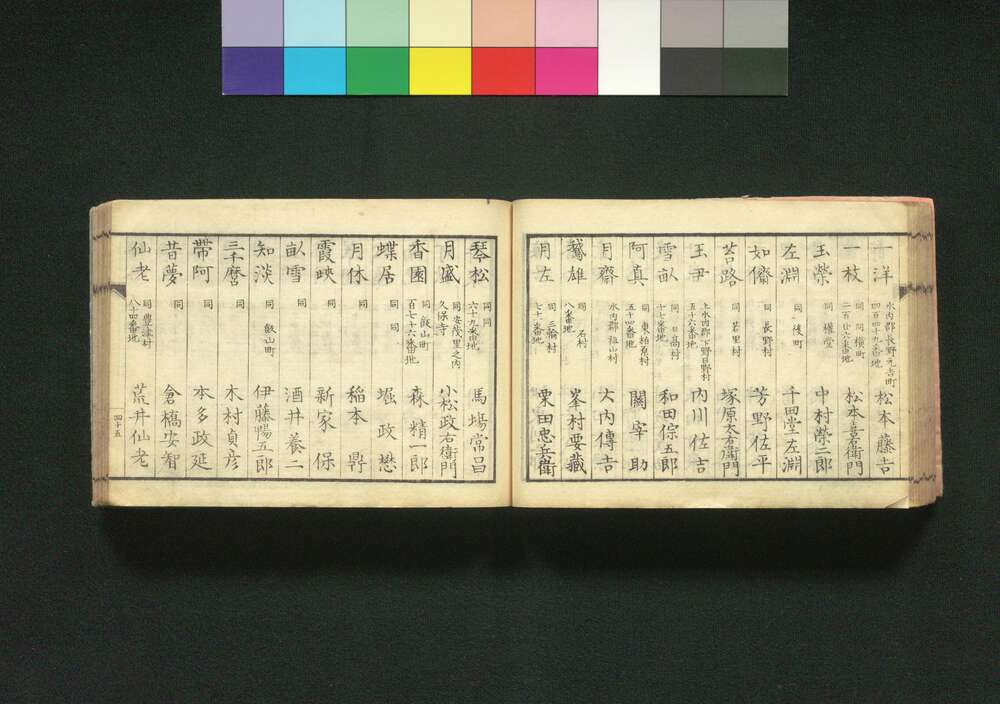 一洋 水内郡長野元吉町四百四十九番地 松本藤吉
一枝 同 同横町二百廿六番地 松本善右衛門
玉榮 同 權堂 中村榮二郎
左淵 同 後町 千田堂左淵
如儕 同 長野村 芳野佐平
苔路 同 若里村 塚原太右衛門
玉尹 上水内郡下野日野村五十六番地 内川佐吉
雪畝 同 日高村十七番地 和田保五郎
阿真 同 東柏原村五十四番地 關宰助
月齋 水内郡狙山村 大内傳吉
鵞雄 同 石村八番地 峯村要藏
月左 同 三輪村七十一番地 栗田忠兵衛
琴松 同 同六十九番地 馬場常昌
月盛 同 安茂里之内久保寺 小松政右衛門
香園 同 飯山町百七十六番地 森精一郎
蝶居 同 同 堀政懋
月休 同 稲本鼎
霞映 同 新家保
畝雪 同 酒井養二
知淡 同 飯山町 伊藤暢五郎
三千麿 同 木村貞彦
帶阿 同 本多政延
昔夢 同 倉橋安智
仙老 同 豊津村八十四番地 荒井仙老
四十五